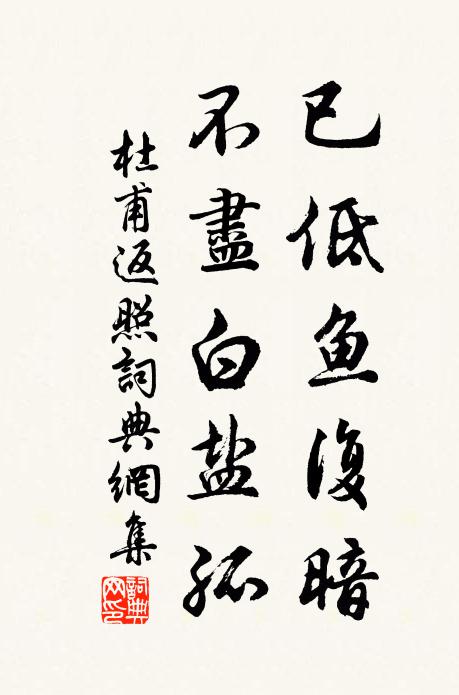 已低鱼復暗
不盡白盐孤
杜甫返照詞典網集
詞典網印